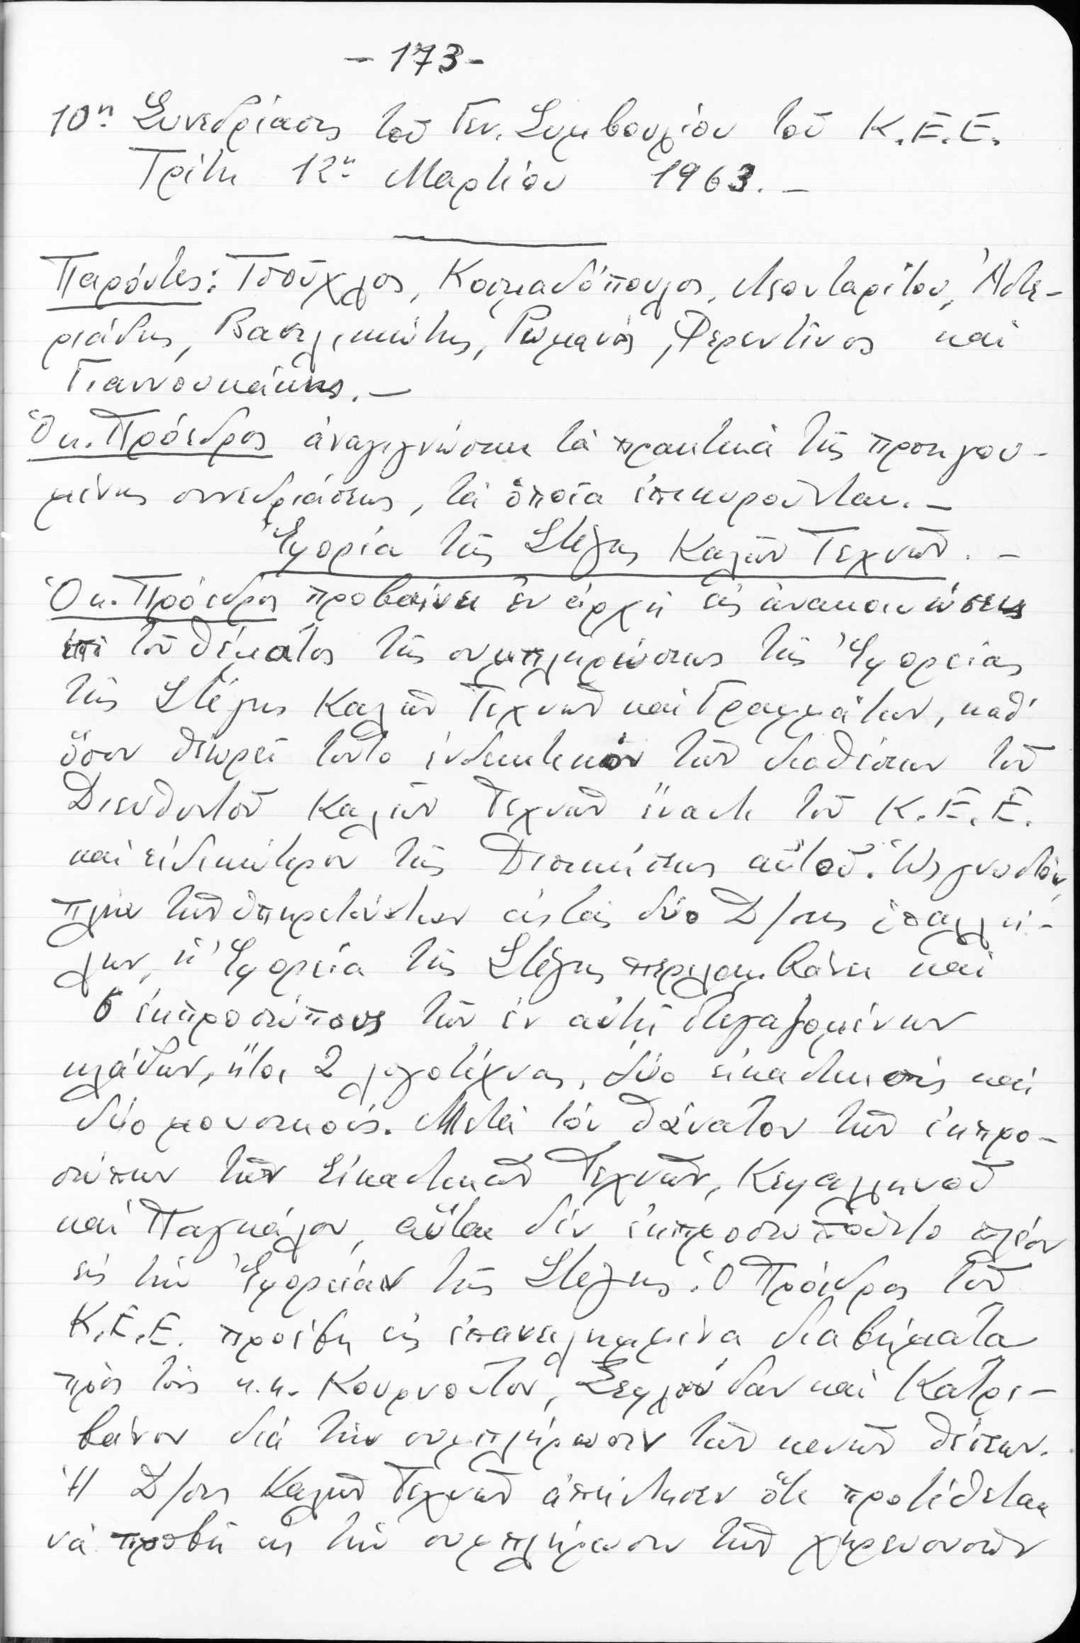 - 173 -
10η Συνεδρίασις τοῦ Γεν. Συμβουλίου τοῦ Κ.Ε.Ε.
Τρίτη 12η Μαρτίου 1963. -
Παρόντες: Τσοῦχλος, Κοσμαδόπουλος, Λεονταρίτου, Ἀστε-
ριάδης, Βασιλειώτης, Ρωμανός, Φερεντῖνος καὶ
Γιαννουκάκης. -
Ὁ κ. Πρόεδρος ἀναγιγνώσκει τὰ πρακτικὰ τῆς προηγου-
μένης συνεδριάσεως, τὰ ὁποῖα ἐπικυροῦνται. -
Ἐφορία τῆς Στέγης Καλῶν Τεχνῶν. -
Ὁ κ. Πρόεδρος προβαίνει ἐν ἀρχῇ εἰς ἀνακοινώσεις
ἐπὶ τοῦ θέματος τῆς συμπληρώσεως τῆς Ἐφορείας
τῆς Στέγης Καλῶν Τεχνῶν καὶ Γραμμάτων, καθ'
ὅσον θεωρεῖ τοῦτο ἐνδεικτικὸν τῶν διαθέσεων τοῦ
Διευθυντοῦ Καλῶν Τεχνῶν ἔναντι τοῦ Κ.Ε.Ε.
καὶ εἰδικώτερον τῆς Διοικήσεως αὐτοῦ. Ὡς γνωστόν,
πλὴν τῶν ὑπηρετούντων εἰς τὰς δύο Δ/σεις ὑπαλλή-
λων, ἡ Ἐφορεία τῆς Στέγης περιλαμβάνει καὶ
6 ἐκπροσώπους τῶν ἐν αὐτῇ στεγαζομένων
κλάδων, ἤτοι 2 λογοτέχνας, δύο εἰκαστικοὺς καὶ
δύο μουσικούς. Μετὰ τὸν θάνατον τῶν ἐκπρο-
σώπων τῶν Εἰκαστικῶν Τεχνῶν, Κεφαλληνοῦ
καὶ Παγκάλου, αὗται δὲν ἐκπροσωποῦντο πλέον
εἰς τὴν Ἐφορείαν τῆς Στέγης. Ὁ Πρόεδρος τοῦ
Κ.Ε.Ε. προέβη εἰς ἐπανειλημμένα διαβήματα
πρὸς τοὺς κ.κ. Κουρνοῦτον, Ξεφλούδαν καὶ Κατρι-
βάνον διὰ τὴν συμπλήρωσιν τῶν κενῶν θέσεων.
Ἡ Δ/σις Καλῶν Τεχνῶν ἀπήντησεν ὅτι προτίθεται
νὰ προβῇ εἰς τὴν συμπλήρωσιν τῶν χηρευουσῶν